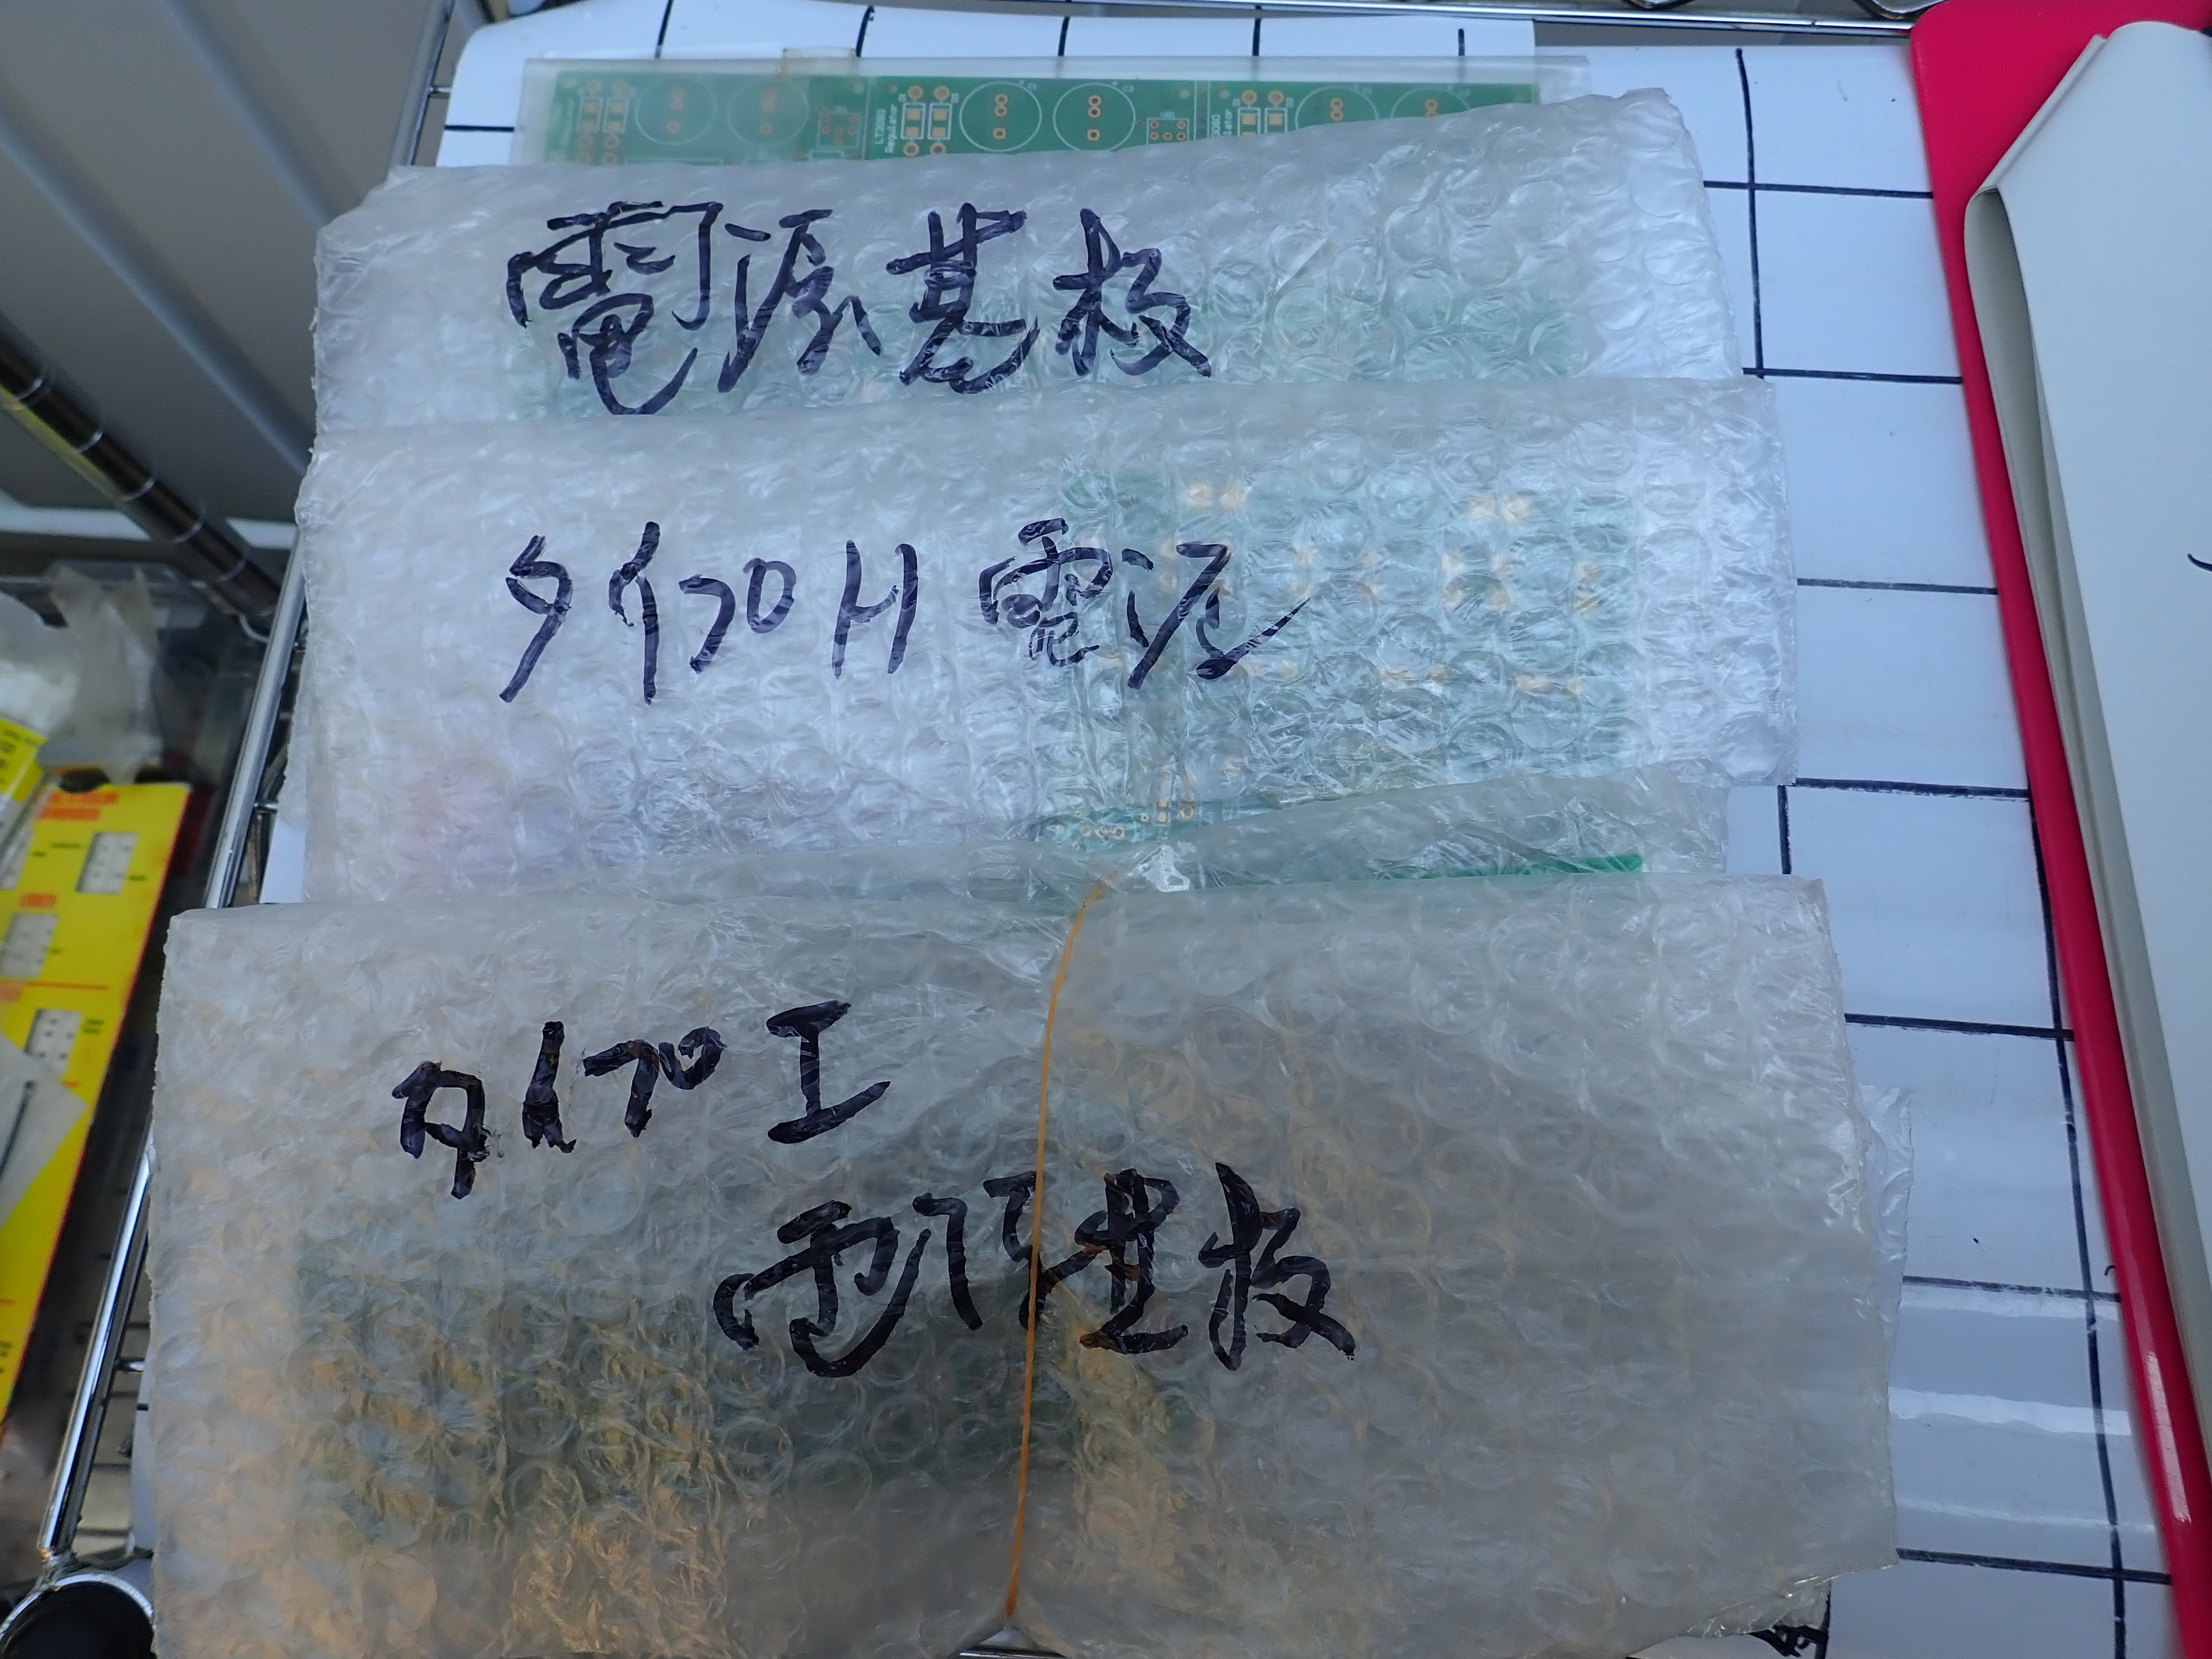 LT3080
Regulator
電源基板
タイプH 電源
タイプI
電源基板